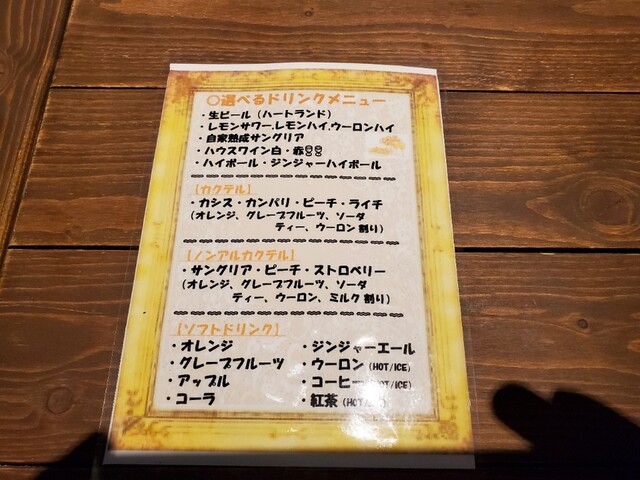 ○選べるドリンクメニュー
・生ビール（ハートランド）
・レモンサワー.レモンハイ.ウーロンハイ
・自家熟成サングリア
・ハウスワイン白・赤
・ハイボール・ジンジャーハイボール
【カクテル】
・カシス・カンパリ・ピーチ・ライチ
（オレンジ、グレープフルーツ、ソーダ
ティー、ウーロン 割り）
【ノンアルカクテル】
・サングリア・ピーチ・ストロベリー
（オレンジ、グレープフルーツ、ソーダ
ティー、ウーロン、ミルク 割り）
【ソフトドリンク】
・オレンジ
・グレープフルーツ
・アップル
・コーラ
・ジンジャーエール
・ウーロン（HOT/ICE）
・コーヒー（HOT/ICE）
・紅茶（HOT/